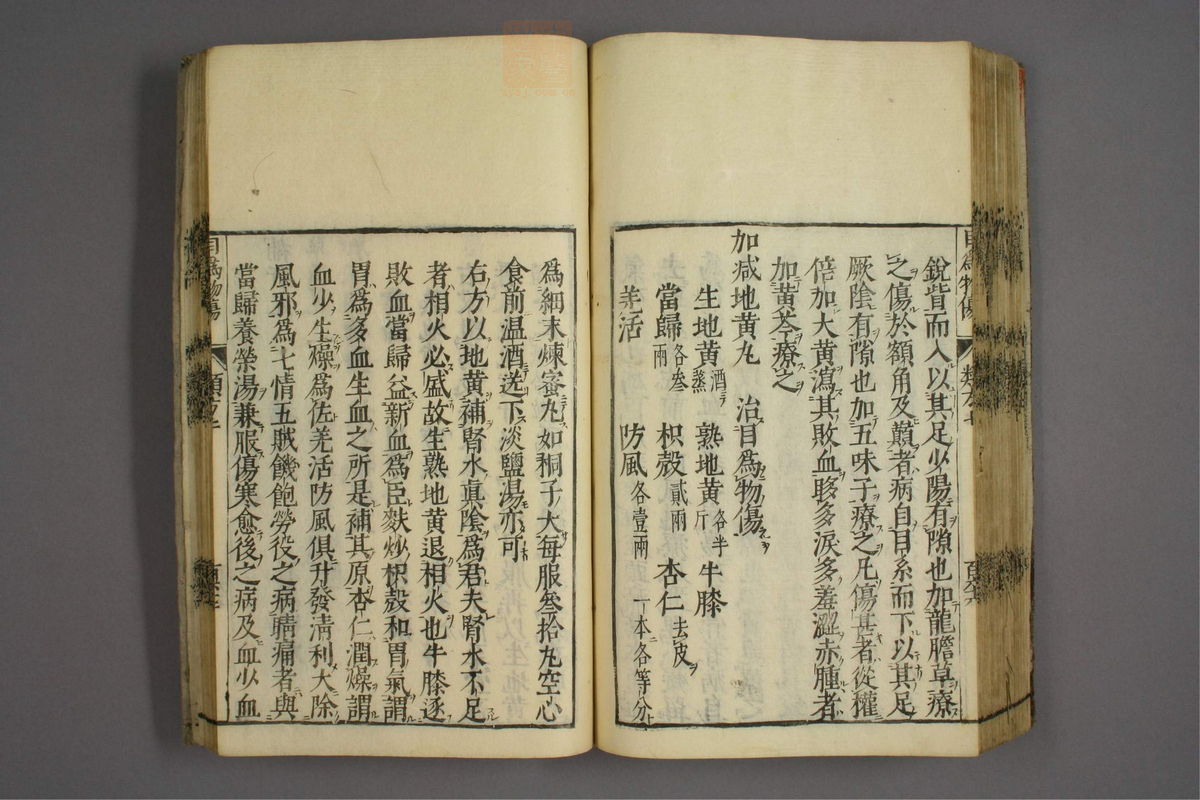 銳眥而入以其足少陽有隙也加龍膽草療
之傷於額角及巔者病自目系而下以其足
厥陰有隙也加五味子療之凡傷甚者從權
倍加大黃瀉其敗血眵多淚多羞澀赤腫者
加黃芩療之
加减地黃丸 治目爲物傷
生地黃酒蒸 熟地黃各半斤 牛膝
當歸各叁兩 枳殼貳兩 杏仁去皮
羌活 防風各壹兩 一本各等分
爲細末煉蜜丸如桐子大每服叁拾丸空心
食前温酒送下淡鹽湯亦可
右方以地黃補腎水真陰爲君夫腎水不足
者相火必盛故生熟地黃退相火也牛膝逐
敗血當歸益新血爲臣麩炒枳殼和胃氣謂
胃爲多血生血之所是補其原杏仁潤燥謂
血少生燥爲佐羌活防風俱升發清利大除
風邪爲七情五賊饑飽勞役之病睛痛者與
當歸養榮湯兼服傷寒愈後之病及血少血
目爲物傷